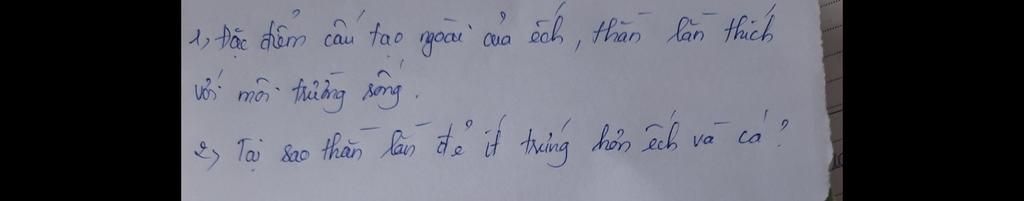 1, Đặc điểm cấu tạo ngoài của ếch, thằn lằn thích
với môi trường sống.
2, Tại sao thằn lằn đẻ ít trứng hơn ếch và cá?